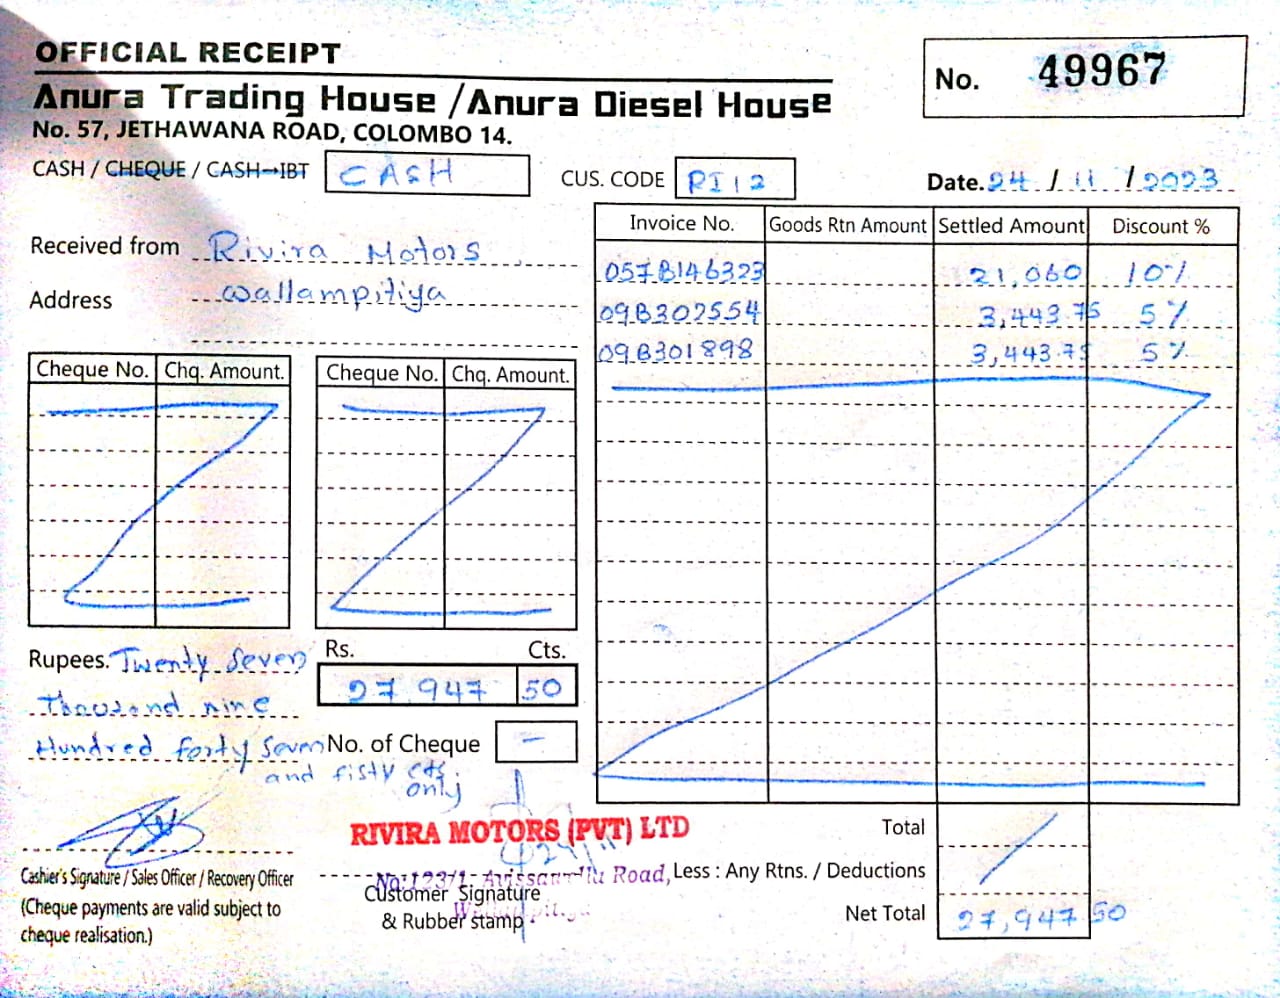 OFFICIAL RECEIPT
No. 49967
Anura Trading House / Anura Diesel House
No. 57, JETHAWANA ROAD, COLOMBO 14.
CASH / CHEQUE / CASH→IBT CASH CUS. CODE RI12 Date. 24 / 11 / 2023
Received from Rivira Motors
Address wallampitiya
Invoice No. Goods Rtn Amount Settled Amount Discount %
057B146323 21,060 10%
09B302554 3,443.75 5%
09B301898 3,443.75 5%
Cheque No. Chq. Amount. Cheque No. Chq. Amount.
Rupees. Twenty Seven
Thousand nine
Hundred forty Seven
and fisty cts
only
Rs. Cts.
27 947 50
No. of Cheque –
RIVIRA MOTORS (PVT) LTD
No:123/1, Avissawella Road,
Cashier's Signature / Sales Officer / Recovery Officer
(Cheque payments are valid subject to
cheque realisation.)
Customer Signature
& Rubber stamp
Total
Less : Any Rtns. / Deductions
Net Total 27,947 50